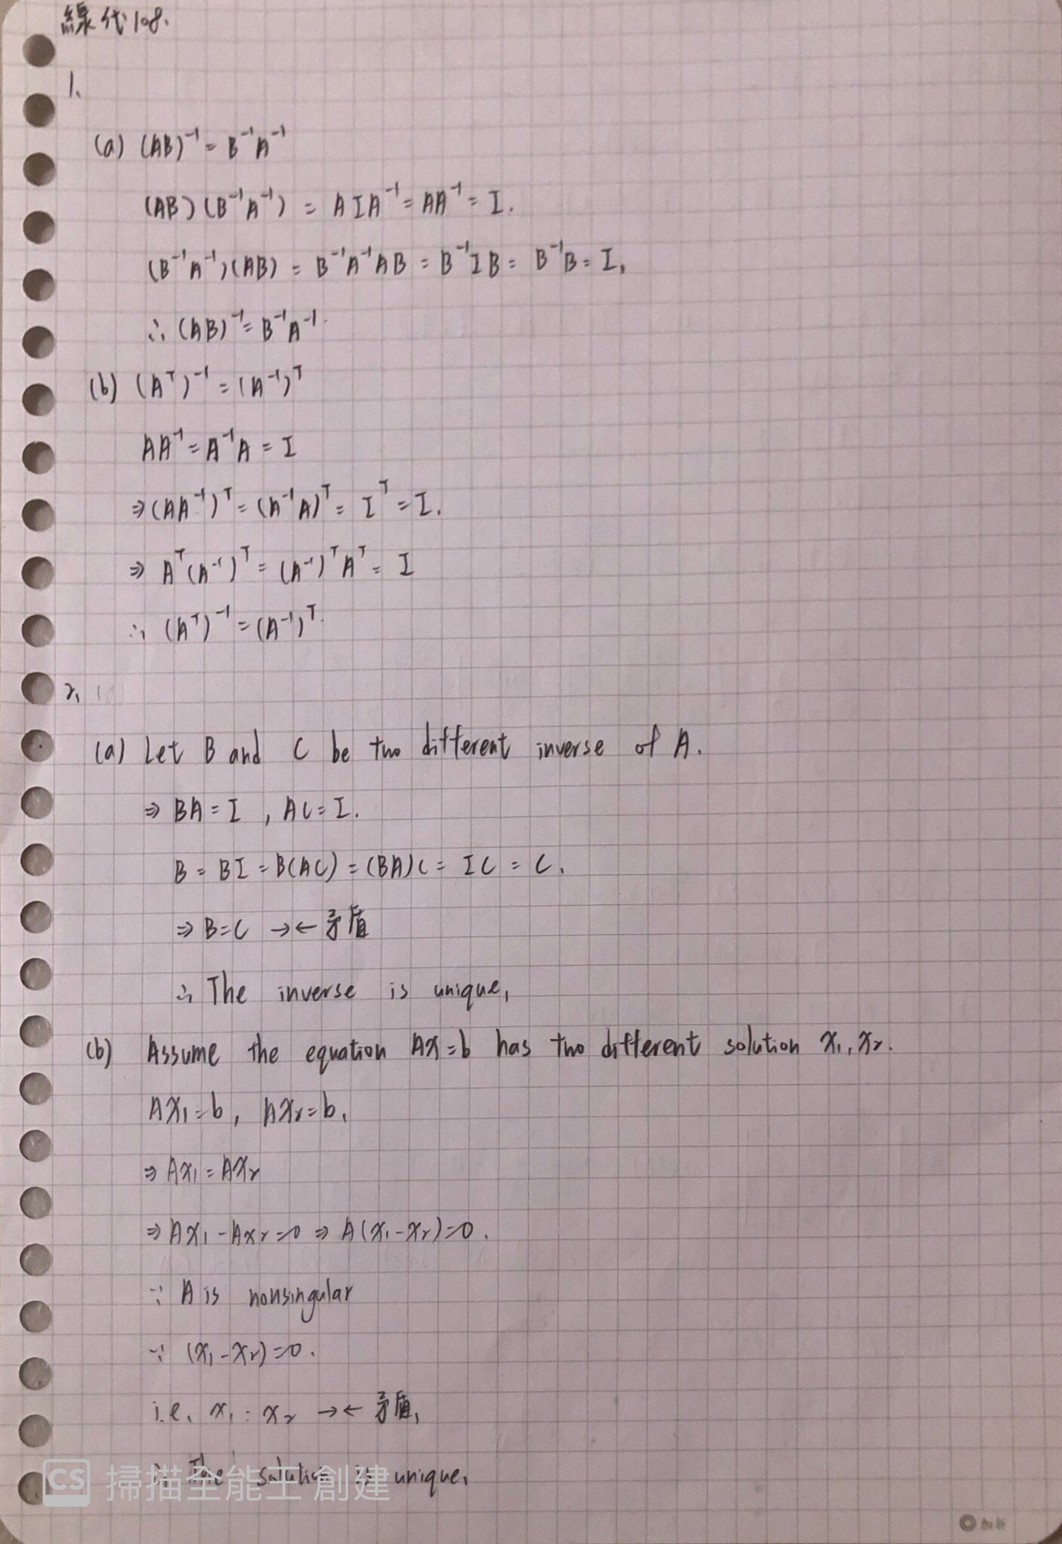 線代108.
1.
(a) (AB)⁻¹ = B⁻¹A⁻¹
(AB)(B⁻¹A⁻¹) = AIA⁻¹ = AA⁻¹ = I.
(B⁻¹A⁻¹)(AB) = B⁻¹A⁻¹AB = B⁻¹IB = B⁻¹B = I,
∴ (AB)⁻¹ = B⁻¹A⁻¹.
(b) (Aᵀ)⁻¹ = (A⁻¹)ᵀ
AA⁻¹ = A⁻¹A = I
⇒ (AA⁻¹)ᵀ = (A⁻¹A)ᵀ = Iᵀ = I.
⇒ Aᵀ(A⁻¹)ᵀ = (A⁻¹)ᵀAᵀ = I
∴ (Aᵀ)⁻¹ = (A⁻¹)ᵀ.
2.
(a) Let B and C be two different inverse of A.
⇒ BA = I , AC = I.
B = BI = B(AC) = (BA)C = IC = C.
⇒ B = C →← 矛盾
∴ The inverse is unique,
(b) Assume the equation Ax = b has two different solution x₁, x₂.
Ax₁ = b, Ax₂ = b,
⇒ Ax₁ = Ax₂
⇒ Ax₁ - Ax₂ = 0 ⇒ A(x₁ - x₂) = 0.
∵ A is nonsingular
∵ (x₁ - x₂) = 0.
i.e. x₁ = x₂ →← 矛盾,
∴ The solution is unique,
CS 掃描全能王 創建